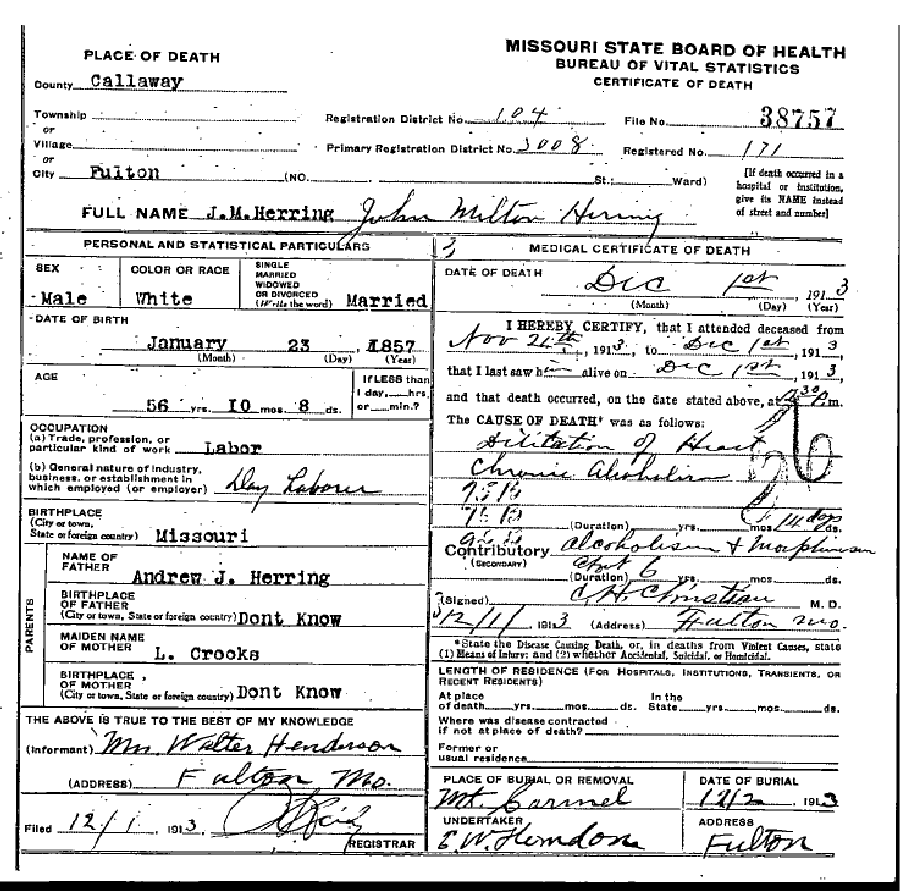 MISSOURI STATE BOARD OF HEALTH
BUREAU OF VITAL STATISTICS
CERTIFICATE OF DEATH
PLACE OF DEATH
County Callaway
Township
or
Village
or
City Fulton (NO. St.; Ward)
Registration District No. 104 File No. 38757
Primary Registration District No. 3008 Registered No. 171
[If death occurred in a
hospital or institution,
give its NAME instead
of street and number]
FULL NAME J.M.Herring John Milton Herring
PERSONAL AND STATISTICAL PARTICULARS
SEX
Male
COLOR OR RACE
White
SINGLE
MARRIED
WIDOWED
OR DIVORCED
(Write the word) Married
DATE OF BIRTH
January 23 1857
(Month) (Day) (Year)
AGE
56 yrs. 10 mos. 8 ds.
If LESS than
1 day, hrs.
or min.?
OCCUPATION
(a) Trade, profession, or
particular kind of work Labor
(b) General nature of industry,
business, or establishment in
which employed (or employer) Day Laborer
BIRTHPLACE
(City or town,
State or foreign country) Missouri
PARENTS
NAME OF
FATHER
Andrew J. Herring
BIRTHPLACE
OF FATHER
(City or town, State or foreign country) Dont Know
MAIDEN NAME
OF MOTHER
L. Crooks
BIRTHPLACE
OF MOTHER
(City or town, State or foreign country) Dont Know
THE ABOVE IS TRUE TO THE BEST OF MY KNOWLEDGE
(Informant) Mrs Walter Henderson
(ADDRESS) Fulton Mo.
Filed 12/1, 1913
REGISTRAR
3
MEDICAL CERTIFICATE OF DEATH
DATE OF DEATH
Dec 1st, 1913
(Month) (Day) (Year)
I HEREBY CERTIFY, that I attended deceased from
Nov 24th, 1913, to Dec 1st, 1913
that I last saw him alive on Dec 1st, 1913,
and that death occurred, on the date stated above, at 30 P.m.
The CAUSE OF DEATH* was as follows:
Dilitation of Heart
Chronic Alcoholism
(Duration) yrs. mos. 14 days ds.
Contributory Alcoholism + Morphinism
(SECONDARY)
(Duration) 6 yrs. mos. ds.
(Signed) C.H. Christian M. D.
12/1/1913 (Address) Fulton Mo.
*State the Disease Causing Death, or, in deaths from Violent Causes, state
(1) Means of Injury; and (2) whether Accidental, Suicidal, or Homicidal.
LENGTH OF RESIDENCE (FOR HOSPITALS, INSTITUTIONS, TRANSIENTS, OR
RECENT RESIDENTS)
At place In the
of death yrs. mos. ds. State yrs. mos. ds.
Where was disease contracted
if not at place of death?
Former or
usual residence
PLACE OF BURIAL OR REMOVAL
Mt. Carmel
DATE OF BURIAL
12/2, 1913
UNDERTAKER
E.W. Herndon
ADDRESS
Fulton